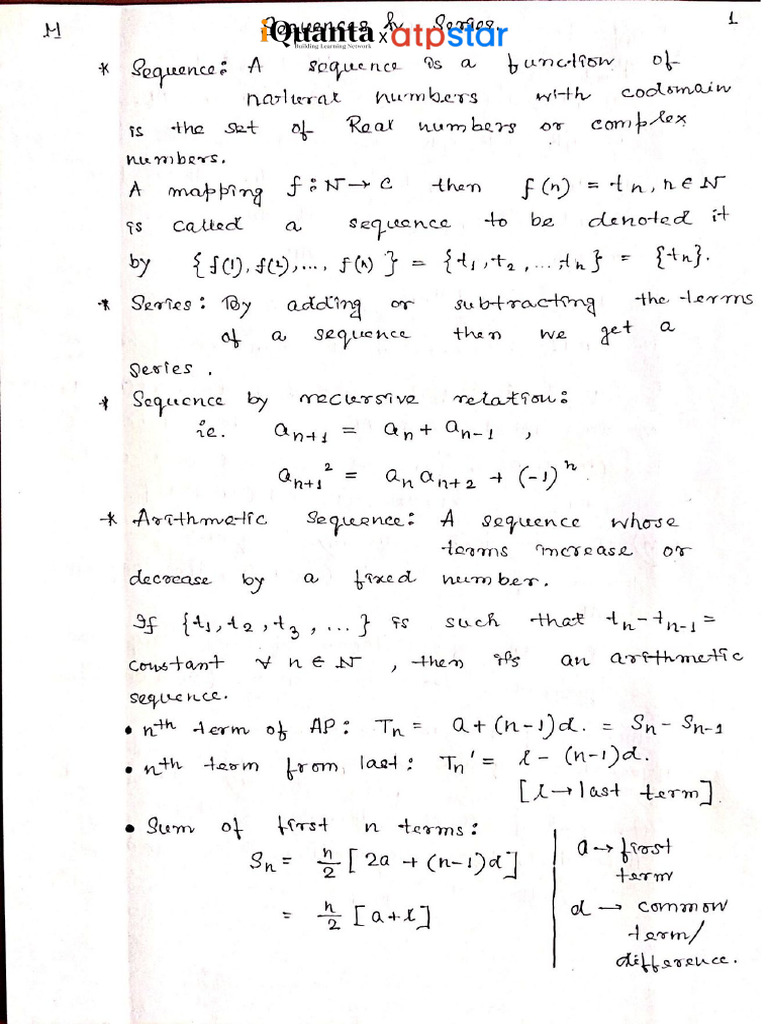 M
Sequences & Series.
1
iQuanta x atpstar
Building Learning Network
* Sequence: A sequence is a function of
natural numbers with codomain
is the set of Real numbers or complex
numbers.
A mapping f: N → C then f(n) = tn, n ∈ N
is called a sequence to be denoted it
by {f(1), f(2),..., f(n)} = {t₁, t₂ ,...,tn} = {tn}.
* Series: By adding or subtracting the terms
of a sequence then we get a
series.
* Sequence by recursive relation:
ie. aₙ₊₁ = aₙ + aₙ₋₁ ,
aₙ₊₁² = aₙ aₙ₊₂ + (-1)ⁿ.
* Arithmetic Sequence: A sequence whose
terms increase or
decrease by a fixed number.
If {t₁, t₂, t₃, ...} is such that tₙ - tₙ₋₁ =
constant ∀ n ∈ N , then it's an arithmetic
sequence.
• nth term of AP: Tₙ = a + (n-1)d. = Sₙ - Sₙ₋₁
• nth term from last: Tₙ' = l - (n-1)d.
[l → last term]
• Sum of first n terms:
Sₙ = n/2 [2a + (n-1)d]
= n/2 [a + l]
a → first
term
d → common
term/
difference.